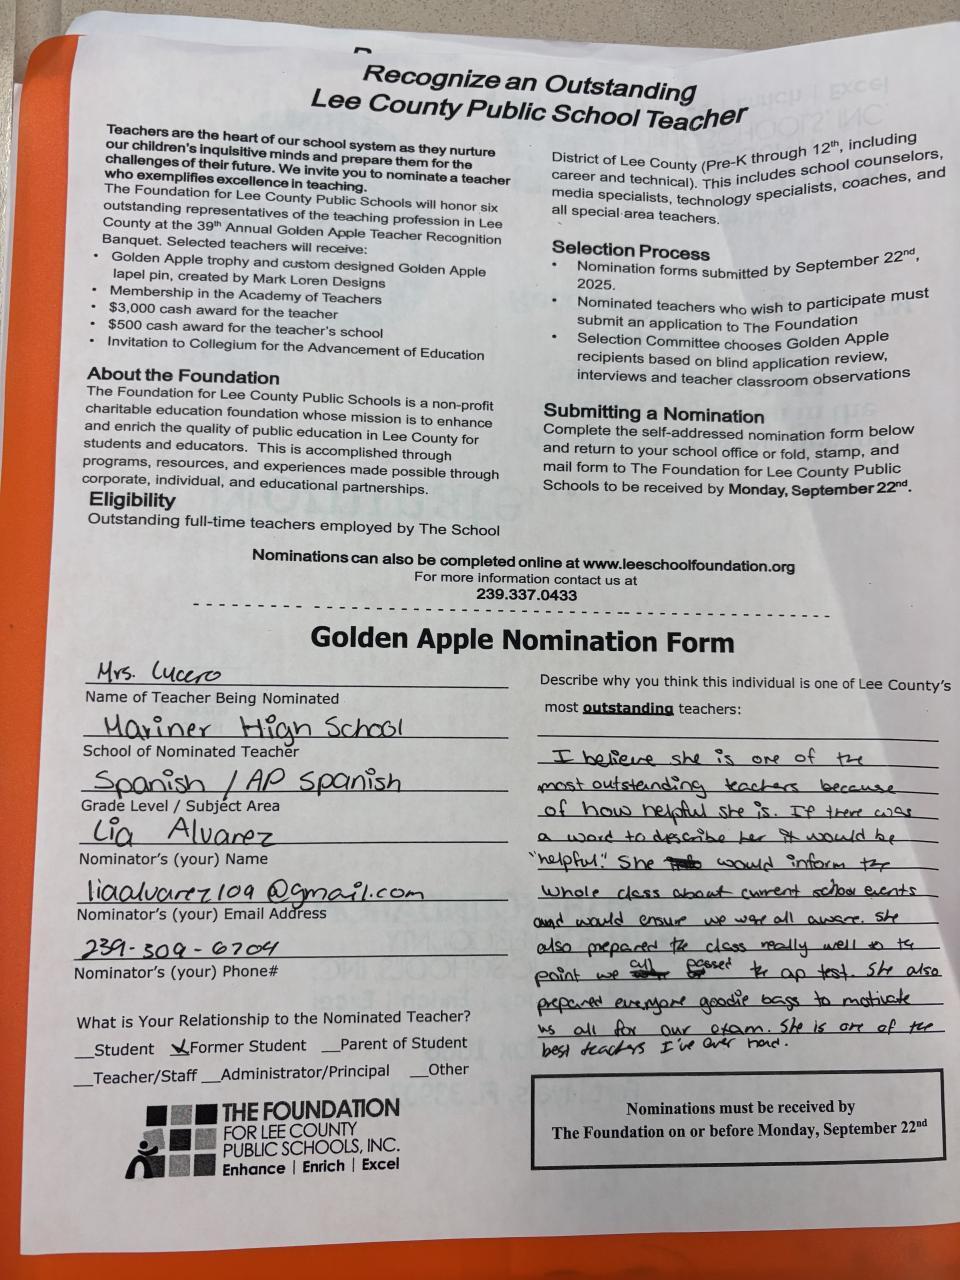 Recognize an Outstanding
Lee County Public School Teacher
Teachers are the heart of our school system as they nurture
our children's inquisitive minds and prepare them for the
challenges of their future. We invite you to nominate a teacher
who exemplifies excellence in teaching.
The Foundation for Lee County Public Schools will honor six
outstanding representatives of the teaching profession in Lee
County at the 39th Annual Golden Apple Teacher Recognition
Banquet. Selected teachers will receive:
• Golden Apple trophy and custom designed Golden Apple
lapel pin, created by Mark Loren Designs
• Membership in the Academy of Teachers
• $3,000 cash award for the teacher
• $500 cash award for the teacher's school
• Invitation to Collegium for the Advancement of Education
About the Foundation
The Foundation for Lee County Public Schools is a non-profit
charitable education foundation whose mission is to enhance
and enrich the quality of public education in Lee County for
students and educators. This is accomplished through
programs, resources, and experiences made possible through
corporate, individual, and educational partnerships.
Eligibility
Outstanding full-time teachers employed by The School
District of Lee County (Pre-K through 12th, including
career and technical). This includes school counselors,
media specialists, technology specialists, coaches, and
all special area teachers.
Selection Process
• Nomination forms submitted by September 22nd,
2025.
• Nominated teachers who wish to participate must
submit an application to The Foundation
• Selection Committee chooses Golden Apple
recipients based on blind application review,
interviews and teacher classroom observations
Submitting a Nomination
Complete the self-addressed nomination form below
and return to your school office or fold, stamp, and
mail form to The Foundation for Lee County Public
Schools to be received by Monday, September 22nd.
Nominations can also be completed online at www.leeschoolfoundation.org
For more information contact us at
239.337.0433
Golden Apple Nomination Form
Mrs. Lucero
Name of Teacher Being Nominated
Mariner High School
School of Nominated Teacher
Spanish / AP Spanish
Grade Level / Subject Area
Lia Alvarez
Nominator's (your) Name
liaalvarez109@gmail.com
Nominator's (your) Email Address
239-309-6704
Nominator's (your) Phone#
What is Your Relationship to the Nominated Teacher?
__Student ✓Former Student __Parent of Student
__Teacher/Staff __Administrator/Principal __Other
THE FOUNDATION
FOR LEE COUNTY
PUBLIC SCHOOLS, INC.
Enhance | Enrich | Excel
Describe why you think this individual is one of Lee County's
most outstanding teachers:
I believe she is one of the
most outstanding teachers because
of how helpful she is. If there was
a word to describe her it would be
"helpful." She would inform the
whole class about current school events
and would ensure we were all aware. She
also prepared the class really well to the
point we all passed the ap test. She also
prepared everyone goodie bags to motivate
us all for our exam. She is one of the
best teachers I've ever had.
Nominations must be received by
The Foundation on or before Monday, September 22nd